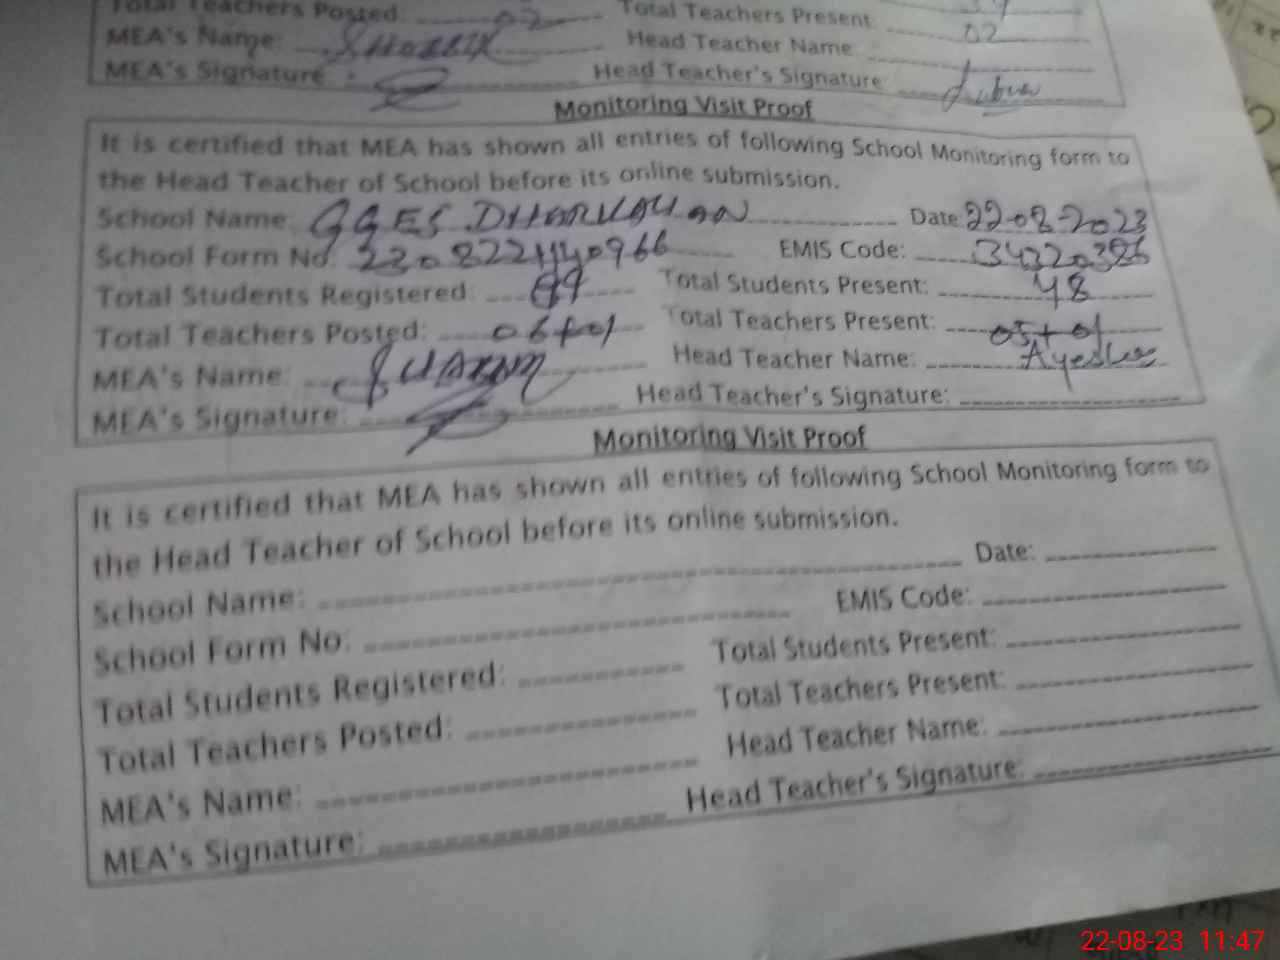 Total Teachers Posted: 02 Total Teachers Present 02
MEA's Name: Head Teacher Name
MEA's Signature : Head Teacher's Signature
Monitoring Visit Proof
It is certified that MEA has shown all entries of following School Monitoring form to
the Head Teacher of School before its online submission.
School Name: GGES Date: 22-08-2023
School Form No. EMIS Code:
Total Students Registered: 89 Total Students Present: 48
Total Teachers Posted: 06+01 Total Teachers Present: 05+01
MEA's Name: Head Teacher Name: Ayesha
MEA's Signature: Head Teacher's Signature:
Monitoring Visit Proof
It is certified that MEA has shown all entries of following School Monitoring form to
the Head Teacher of School before its online submission.
School Name: Date:
School Form No: EMIS Code:
Total Students Registered: Total Students Present:
Total Teachers Posted: Total Teachers Present:
MEA's Name: Head Teacher Name:
MEA's Signature: Head Teacher's Signature:
22-08-23 11:47